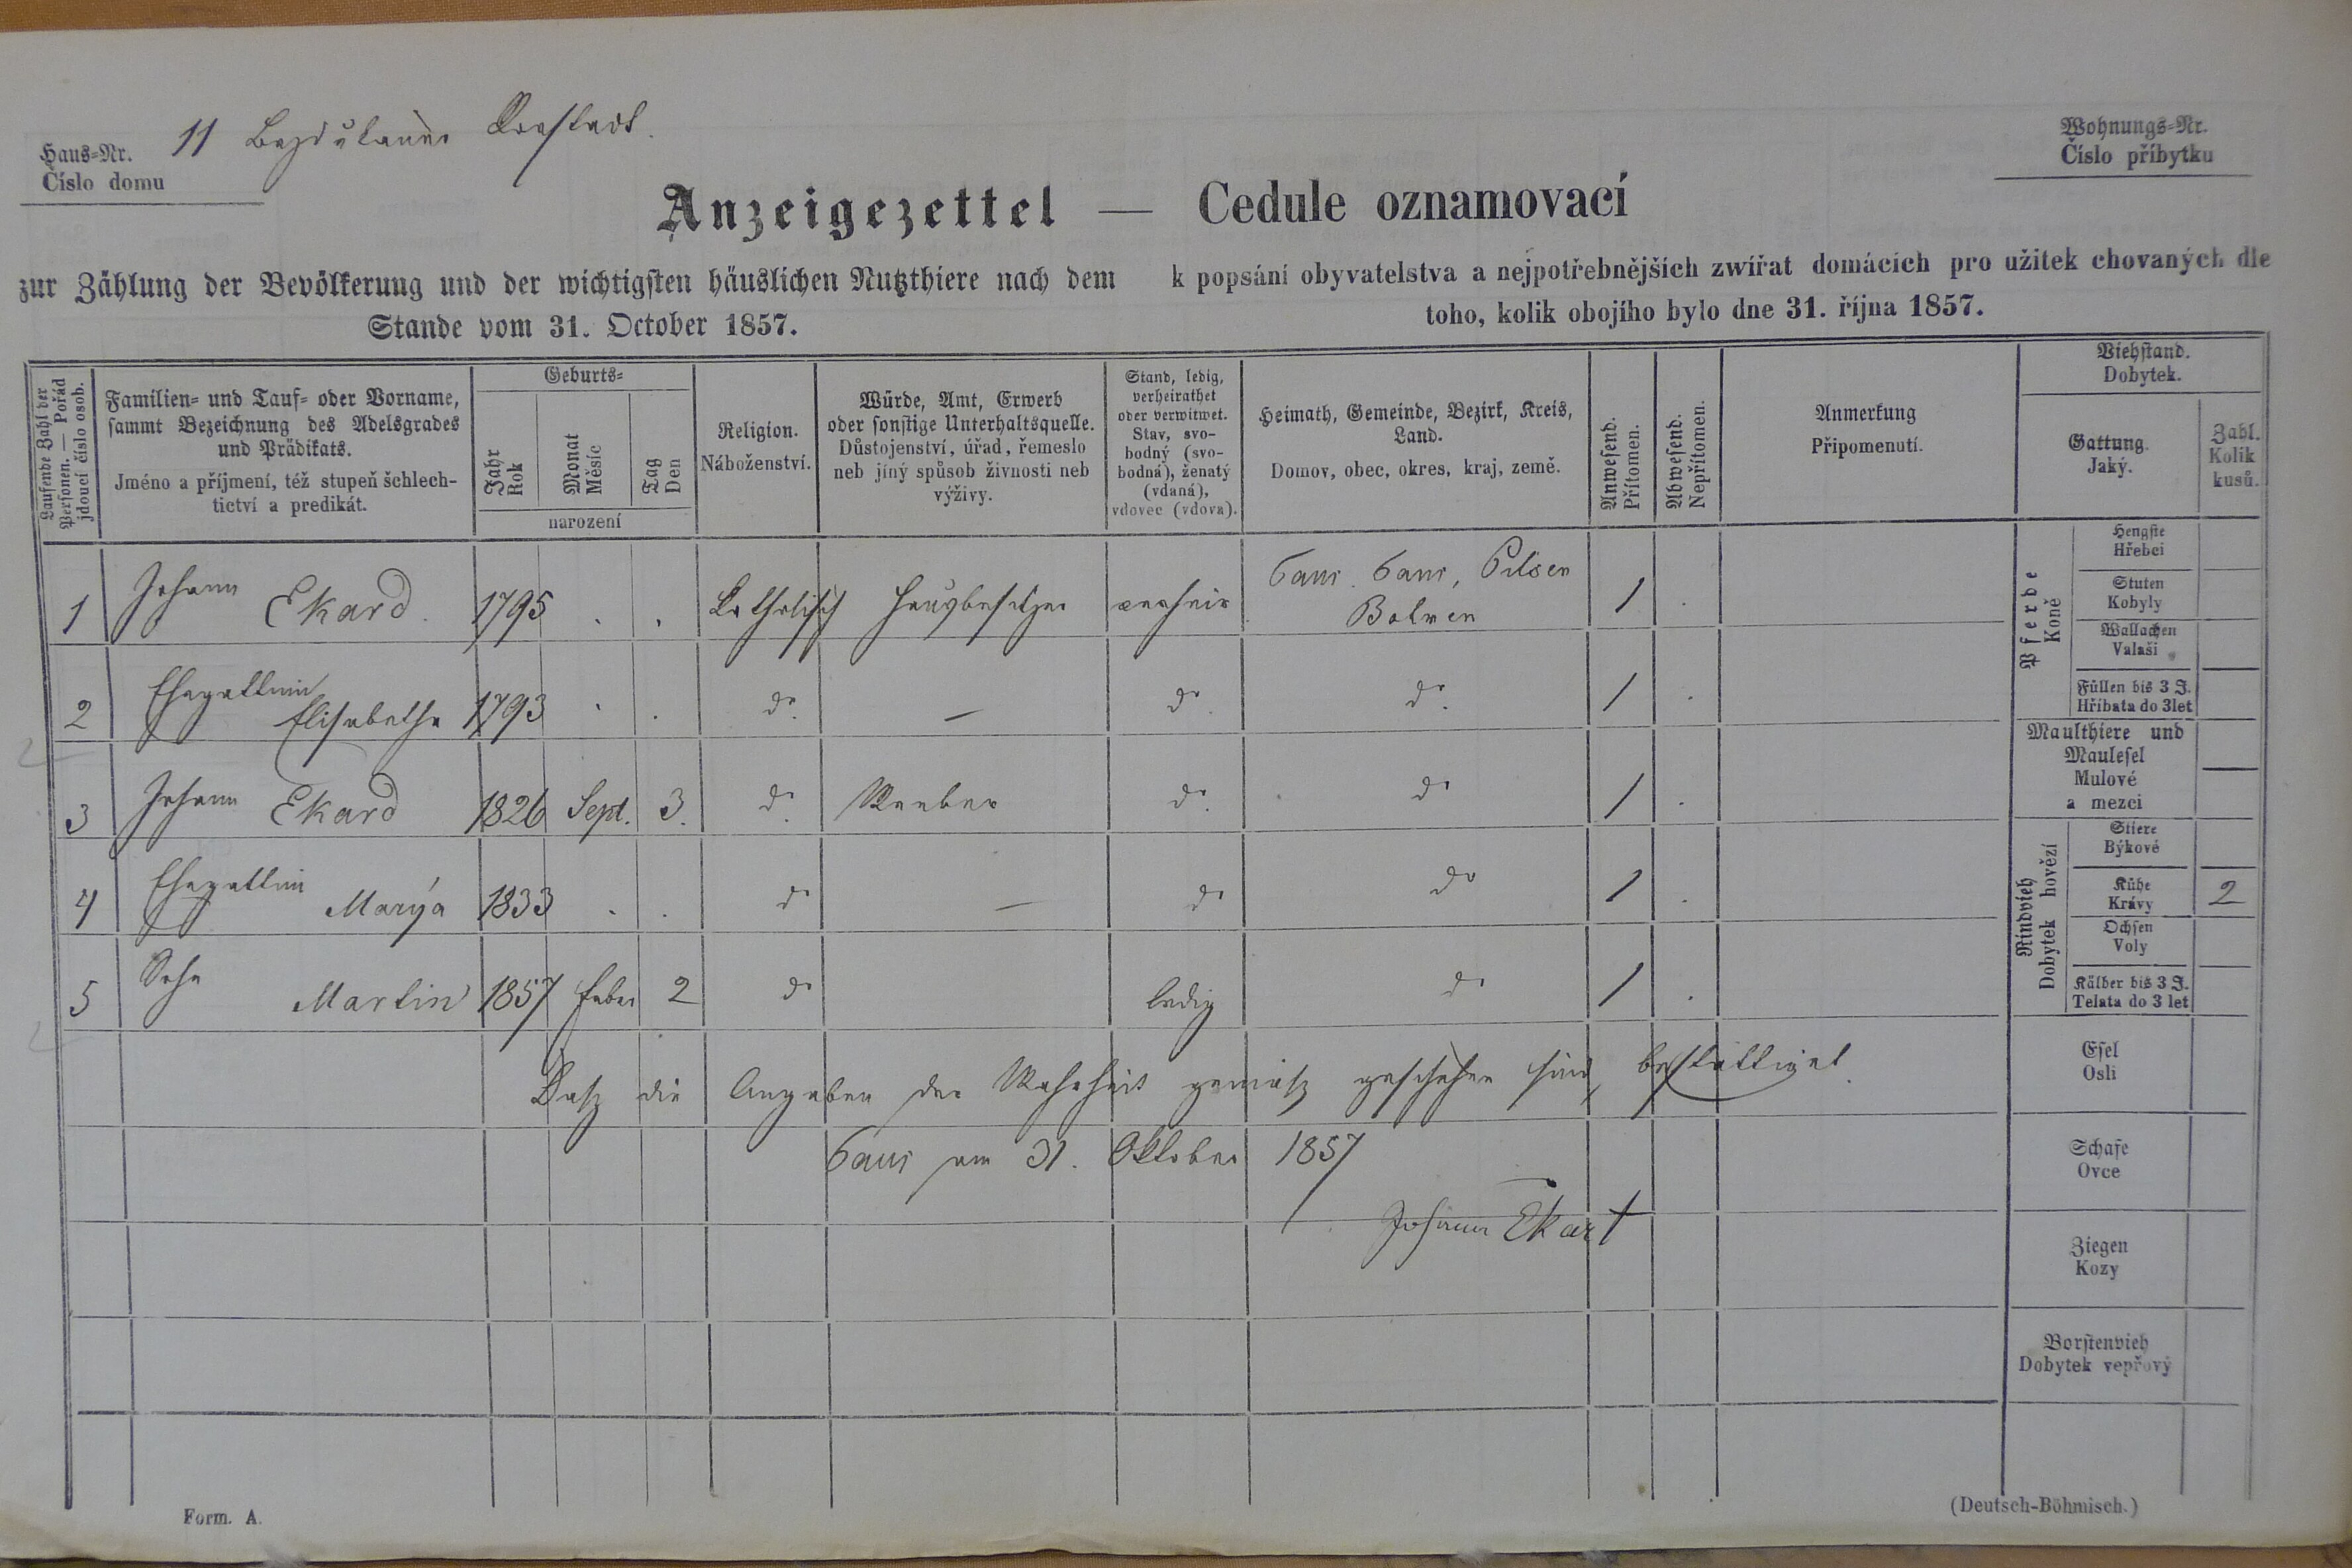 11 Bezdiekauer Vorstadt.
Haus-Nr.
Číslo domu
Wohnungs-Nr.
Číslo příbytku
Anzeigezettel — Cedule oznamovací
zur Zählung der Bevölkerung und der wichtigsten häuslichen Nutzthiere nach dem
Stande vom 31. October 1857.
k popsání obyvatelstva a nejpotřebnějších zwířat domácích pro užitek chovaných dle
toho, kolik obojího bylo dne 31. října 1857.
Laufende Zahl der
Personen. — Pořád
jdoucí číslo osob.
Familien= und Tauf= oder Vorname,
sammt Bezeichnung des Adelsgrades
und Prädikats.
Jméno a příjmení, též stupeň šchlech-
tictví a predikát.
Geburts=
Jahr
Rok
Monat
Měsíc
Tag
Den
narození
Religion.
Náboženství.
Würde, Amt, Erwerb
oder sonstige Unterhaltsquelle.
Důstojenství, úřad, řemeslo
neb jiný spůsob živnosti neb
výživy.
Stand, ledig,
verheirathet
oder verwitwet.
Stav, svo-
bodný (svo-
bodná), ženatý
(vdaná),
vdovec (vdova).
Heimath, Gemeinde, Bezirk, Kreis,
Land.
Domov, obec, okres, kraj, země.
Anwesend.
Přítomen.
Abwesend.
Nepřítomen.
Anmerkung
Připomenutí.
Viehstand.
Dobytek.
Gattung.
Jaký.
Zahl.
Kolik
kusů.
1 Johann Ekard. 1795 . . Katholisch Hausbesitzer 1 .
Pilsen
2 Ehegattin Elisabetha 1793 . . do. — do. do. 1 .
3 Johann Ekard 1826 Sept. 3. do. Weber do. do 1 .
4 Ehegattin Marya 1833 . . do — do do 1 .
5 Sohn Martin 1857 Feber 2 do ledig do 1 .
Daß die Angaben der Wahrheit gemäß geschehen sind, bestättiget.
am 31. Oktober 1857
Johann Ekart
Pferde
Koně
Hengste
Hřebci
Stuten
Kobyly
Wallachen
Valaši
Füllen bis 3 J.
Hříbata do 3let
Maulthiere und
Maulesel
Mulové
a mezci
Rindvieh
Dobytek hovězí
Stiere
Býkové
Kühe
Krávy
2
Ochsen
Voly
Kälber bis 3 J.
Telata do 3 let
Esel
Osli
Schafe
Ovce
Ziegen
Kozy
Borstenvieh
Dobytek vepřový
Form. A.
(Deutsch-Böhmisch.)